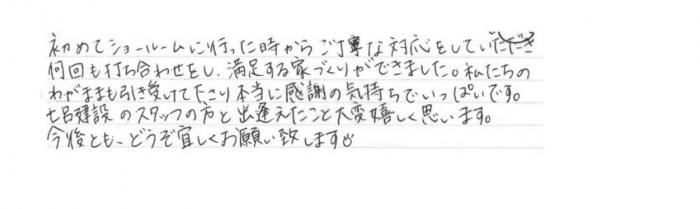 初めてショールームに行った時からご丁寧な対応をしていただき
何回も打ち合わせをし、満足する家づくりができました。私たちの
わがままも引き受けてたさり本当に感謝の気持ちでいっぱいです。
建設のスタッフの方と出逢えたこと大変嬉しく思います。
今後とも、どうぞ宜しくお願い致します